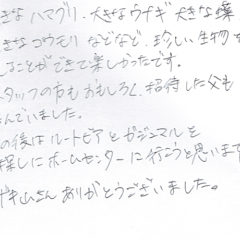 きなハマグリ、大きなウナギ 大きな蝶
きなコウモリなどなど、珍しい生物を
ることができて楽しかったです。
スタッフの方もおもしろく、招待した父も
んでいました。
の後はルートビアとガジュマルを
探しにホームセンターに行こうと思います
ありがとうございました。